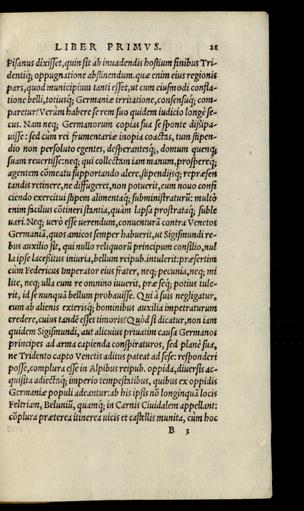 LIBER PRIMVS. 21
Pisanus dixisset, quin sit ab inuadendis hostium finibus Tri-
dentiq; oppugnatione abstinendum. quæ enim eius regionis
pars, quod municipium tanti esset, ut cum eiusmodi confla-
tione belli, totiusq; Germaniæ irritatione, consensuq; com-
paretur? Verùm habere se rem suo quidem iudicio longè se-
cus. Nam neq; Germanorum copias sua sponte dissipa-
uisse: sed cum rei frumentariæ inopia coactas, tum stipen-
dio non persoluto egentes, desperantesq;, domum quenq;
suam reuertisse: neq; qui collectam iam manum, prospereq;
agentem cõmeatu supportando alere, stipendijsq; repræsen
tandis retinere, ne diffugeret, non potuerit, eum nouo confi
ciendo exercitui stipem alimentaq; subministraturũ: multò
enim facilius cõtineri stantia, quàm lapsa prostrataq; suble
uari. Neq; uerò esse uerendum, conuenturâ contra Venetos
Germaniã, quos amicos semper habuerit, ut Sigismundi re-
bus auxilio sit, qui nullo reliquorũ principum consilio, nul
la ipse lacessitus iniuria, bellum reipub. intulerit: præsertim
cum Federicus Imperator eius frater, neq; pecunia, neq; mi
lite, neq; ulla eum re omnino iuuerit, præ seq; potius tule-
rit, id se nunquã bellum probauisse. Qui à suis negligatur,
eum ab alienis exterisq; hominibus auxilia impetraturum
credere, cuius tandẽ esset timoris? Quòd si dicatur, non iam
quidem Sigismundi, aut alicuius priuatim causa Germanos
principes ad arma capienda conspiraturos, sed planè sua,
ne Tridento capto Venetis aditus pateat ad sese: responderi
posse, complura esse in Alpibus reipub. oppida, diuersis ac-
quisita adiectaq; imperio tempestatibus, quibus ex oppidis
Germaniæ populi adeantur: ab his ipsis nõ longinqua locis
Feltriam, Belunũ, quamq; in Carnis Ciuidalem appellant:
cõplura præterea itinerea uicis et castellis munita, cum hoc
B 3